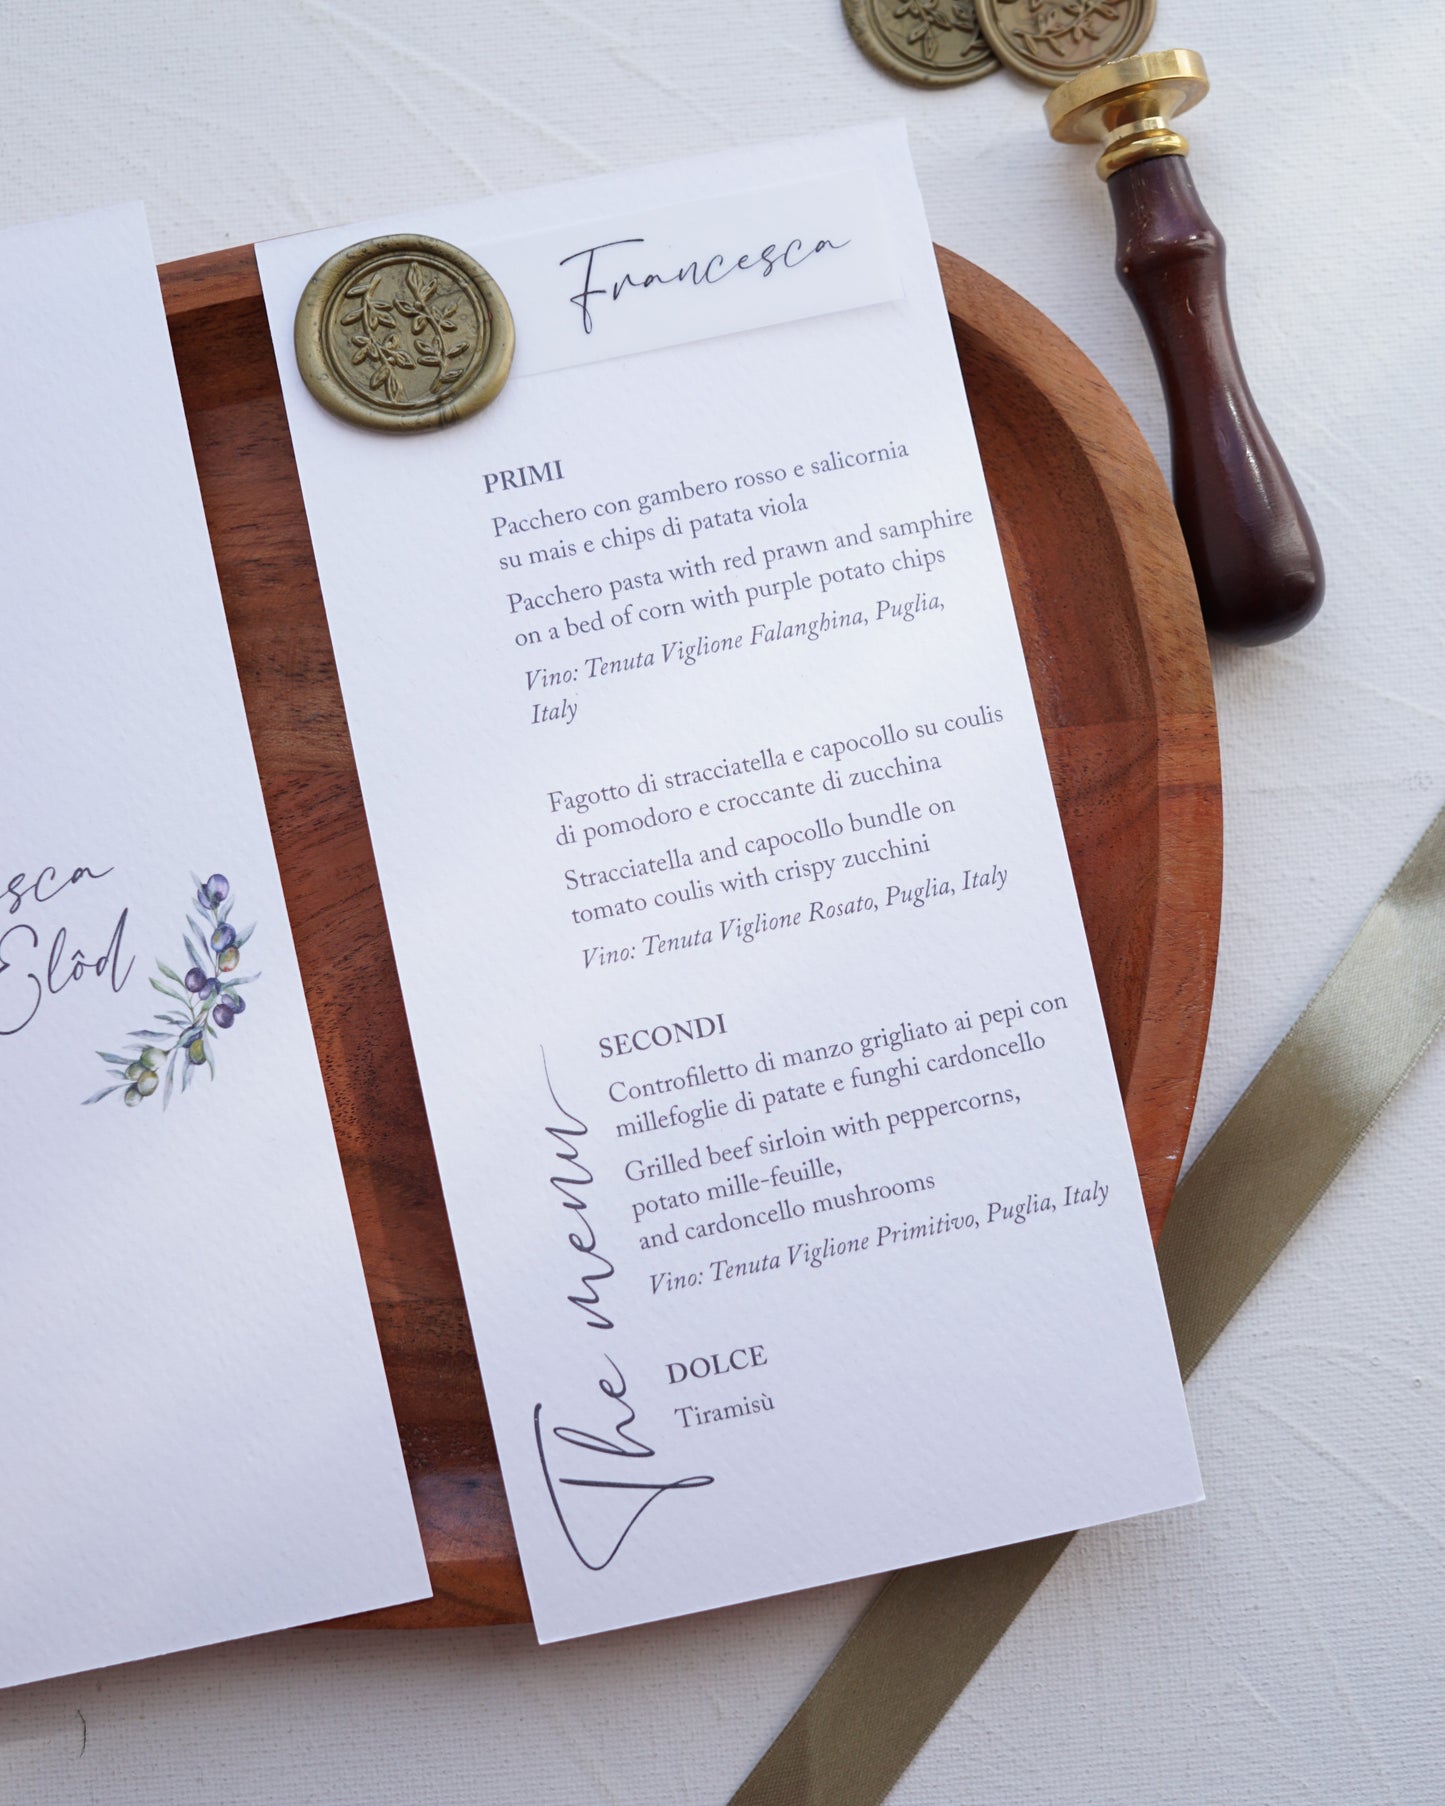 Francesca
PRIMI
Pacchero con gambero rosso e salicornia
su mais e chips di patata viola
Pacchero pasta with red prawn and samphire
on a bed of corn with purple potato chips
Vino: Tenuta Viglione Falanghina, Puglia,
Italy
Fagotto di stracciatella e capocollo su coulis
di pomodoro e croccante di zucchina
Stracciatella and capocollo bundle on
tomato coulis with crispy zucchini
Vino: Tenuta Viglione Rosato, Puglia, Italy
SECONDI
Controfiletto di manzo grigliato ai pepi con
millefoglie di patate e funghi cardoncello
Grilled beef sirloin with peppercorns,
potato mille-feuille,
and cardoncello mushrooms
Vino: Tenuta Viglione Primitivo, Puglia, Italy
DOLCE
Tiramisù
The menu
esca
Elôd